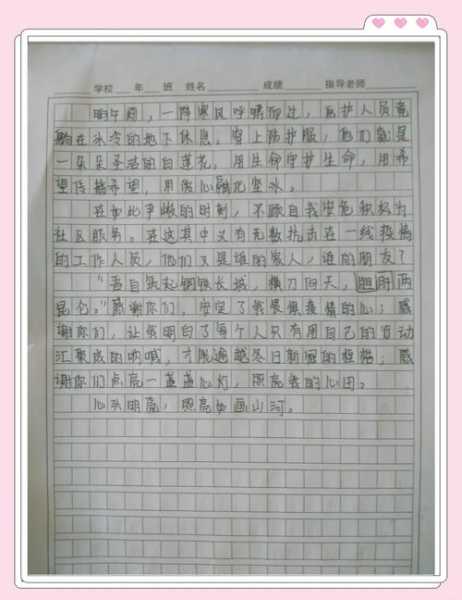 学校 年 班 姓名 成绩 指导老师
晌午间，一阵寒风呼啸而过，医护人员竟
躺在冰冷的地下休息，穿上防护服，他们就是
一朵朵圣洁的白莲花，用生命守护生命，用希
望传播希望，用爱心融化坚冰。
在如此争锋的时刻，不顾自我安危积极为
社区服务。在这其中又有无数抗击在一线疫情
的工作人员，他们又是谁的家人，谁的朋友？
“吾自筑起钢铁长城，横刀向天，肝胆两
昆仑。”感谢你们，安定了我畏惧疫情的心；感
谢你们，让我明白了每个人只有用自己的行动
汇聚成的呐喊，才能逾越冬日新冠的桎梏；感
谢你们点亮一盏盏心灯，照亮我的心田。
心头明亮，照亮如画山河。